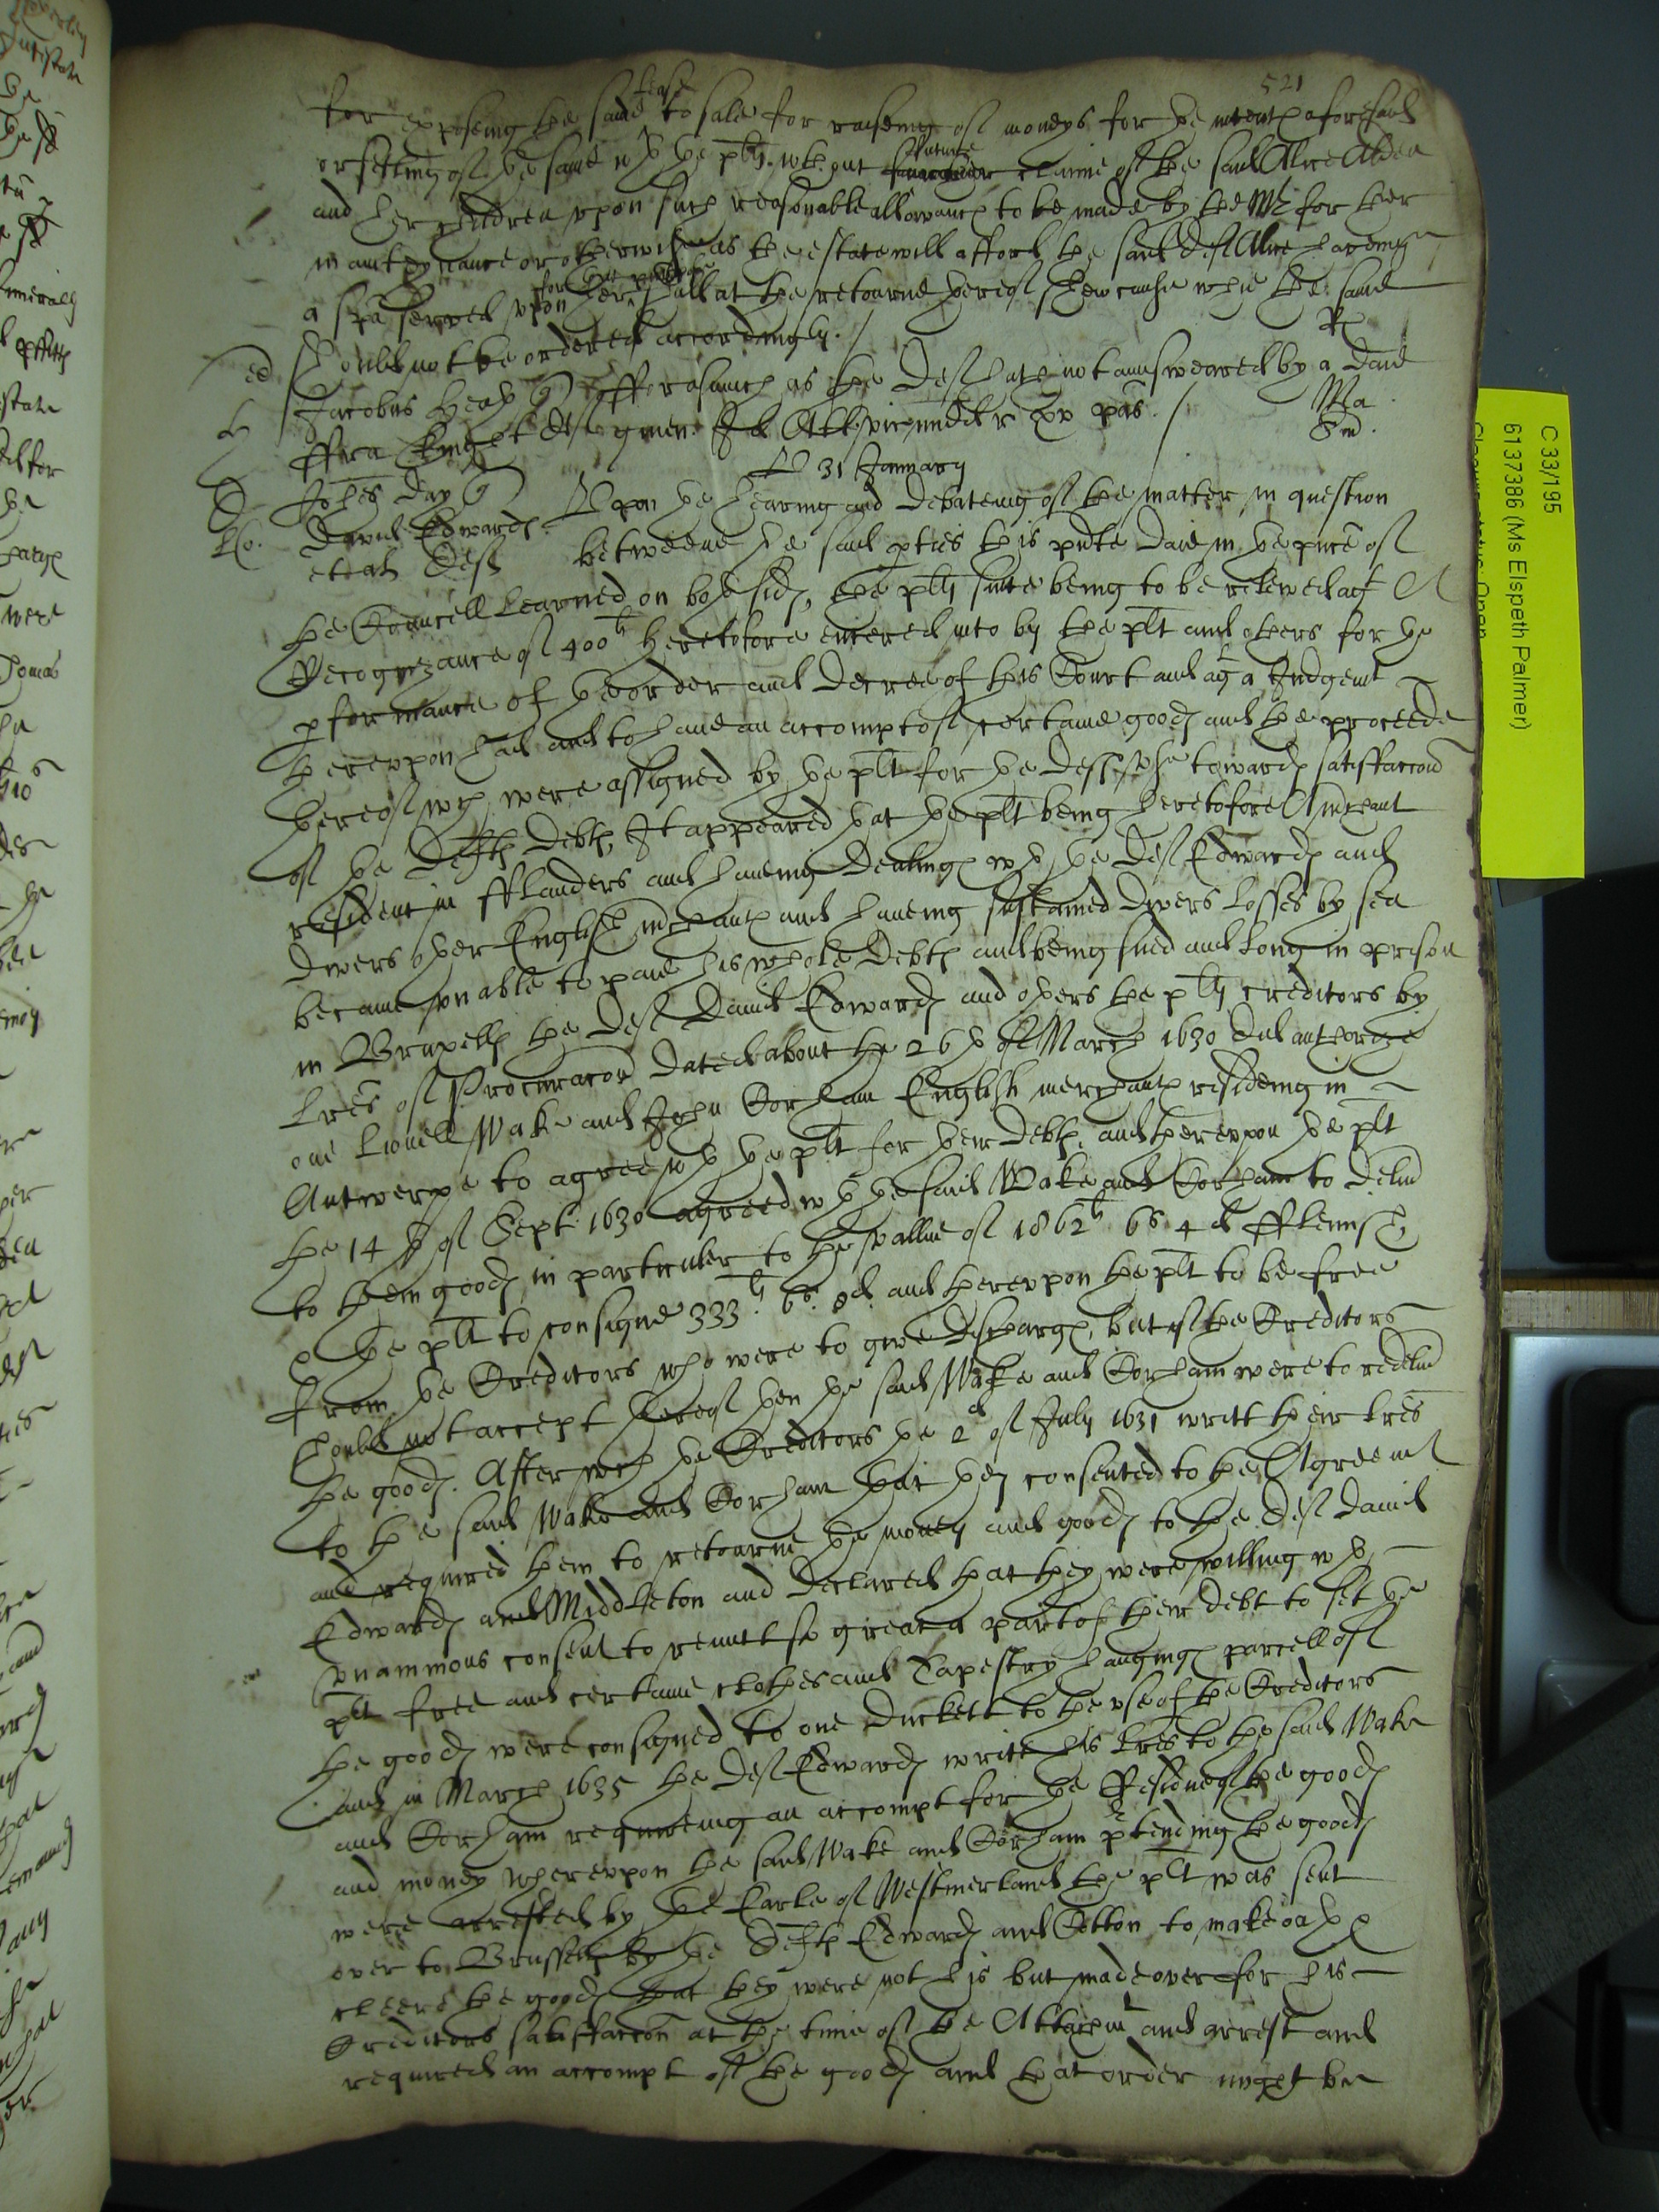 521
for exposeing the same lease to sale for raiseing of moneys for the intentes aforesaid
or setling of the same wth the plts wthout future claime of the said Alice Alden
and her children vpon such reasonable allowance to be made by the Mr for her
mainteynance or otherwise as the estate will afford the said Deft Alice haveing
a spa served vpon her for that purpose shall at the retourne thereof shew cause whie the same
should not be ordered accordingly. /
Jacobus Heath Forasmuch as the Deft hath not aunsweared by a daie
ffra King Deft given. Id Att vic midd r xv pas. /
Ma
31 January
Johes Day Q Vpon the hearing and debateing of the matter in question
David Edwards et al Defts betweene the said pties this pnte daie in the pnce of
the Councell Learned on both sids, the plts suite being to be releived agt A
Recognizance of 400li heretofore entered into by the plt and others for the
pformance of the order and Decree of this Court and agt a Judgemt
therevpon had and to have an accompt of certaine goods and the proceede
thereof wch were assigned by the plt for the Defts vse towards satisfaccon
of the Defts Debts, It appeared that the plt being heretofore A mrchant
resident in fflanders and haveing Dealings wth the Deft Edwards and
Divers other English mrchants and haveing susteined Divers Losses by sea
became vnable to paie his whole Debts and being sued and Long in prison
in Bruxells the Deft David Edwards and others the plts creditors by
Lres of Procuracon Dated about the 26th of March 1630 did authorize
one Lionell Wake and John Corham English merchants resideing in
Antwerpe to agree wth the plt for their Debts, and therevpon the plt
the 14th of Sept. 1630 agreed wth the said Wake and Corham to delivr
to them goods in particuler to the vallue of 1862li 6s 4d fflemish,
the plt to consigne 333li. 6s. 8d. and therevpon the plt to be free
from the Creditors who were to give discharge, but if the Creditors
should not accept thereof then the said Wake and Corham were to redelivr
the goods. After wch the Creditors the 2d of July 1631 writt their Lres
to the said Wake and Corham that they consented to the Agreemt
and required them to retourne the money and goods to the Deft David
Edwards and Middleton and declared that they were willing wth
vnanimous consent to remitt so great a part of their debt to set the
plt free and certaine clothes and Tapestry hangings parcell of
the goods were consigned to one Duckett to the vse of the Creditors
and in March 1635 the Deft Edwards writt his Lres to the said Wake
and Corham requireing an accompt for the Residue of the goods
and money wherevpon the said Wake and Corham ptending the goods
were arrested by the Earle of Westmerland the plt was sent
over to Brussells by the Defts Edwards and Cotton to make oath
cleere the goods that they were not his but made over for his
Creditors satisfaccon at the time of the Attachmt and arrest and
required an accompt of the goods and that order might be
C 33/195
6137386 (Ms Elspeth Palmer)